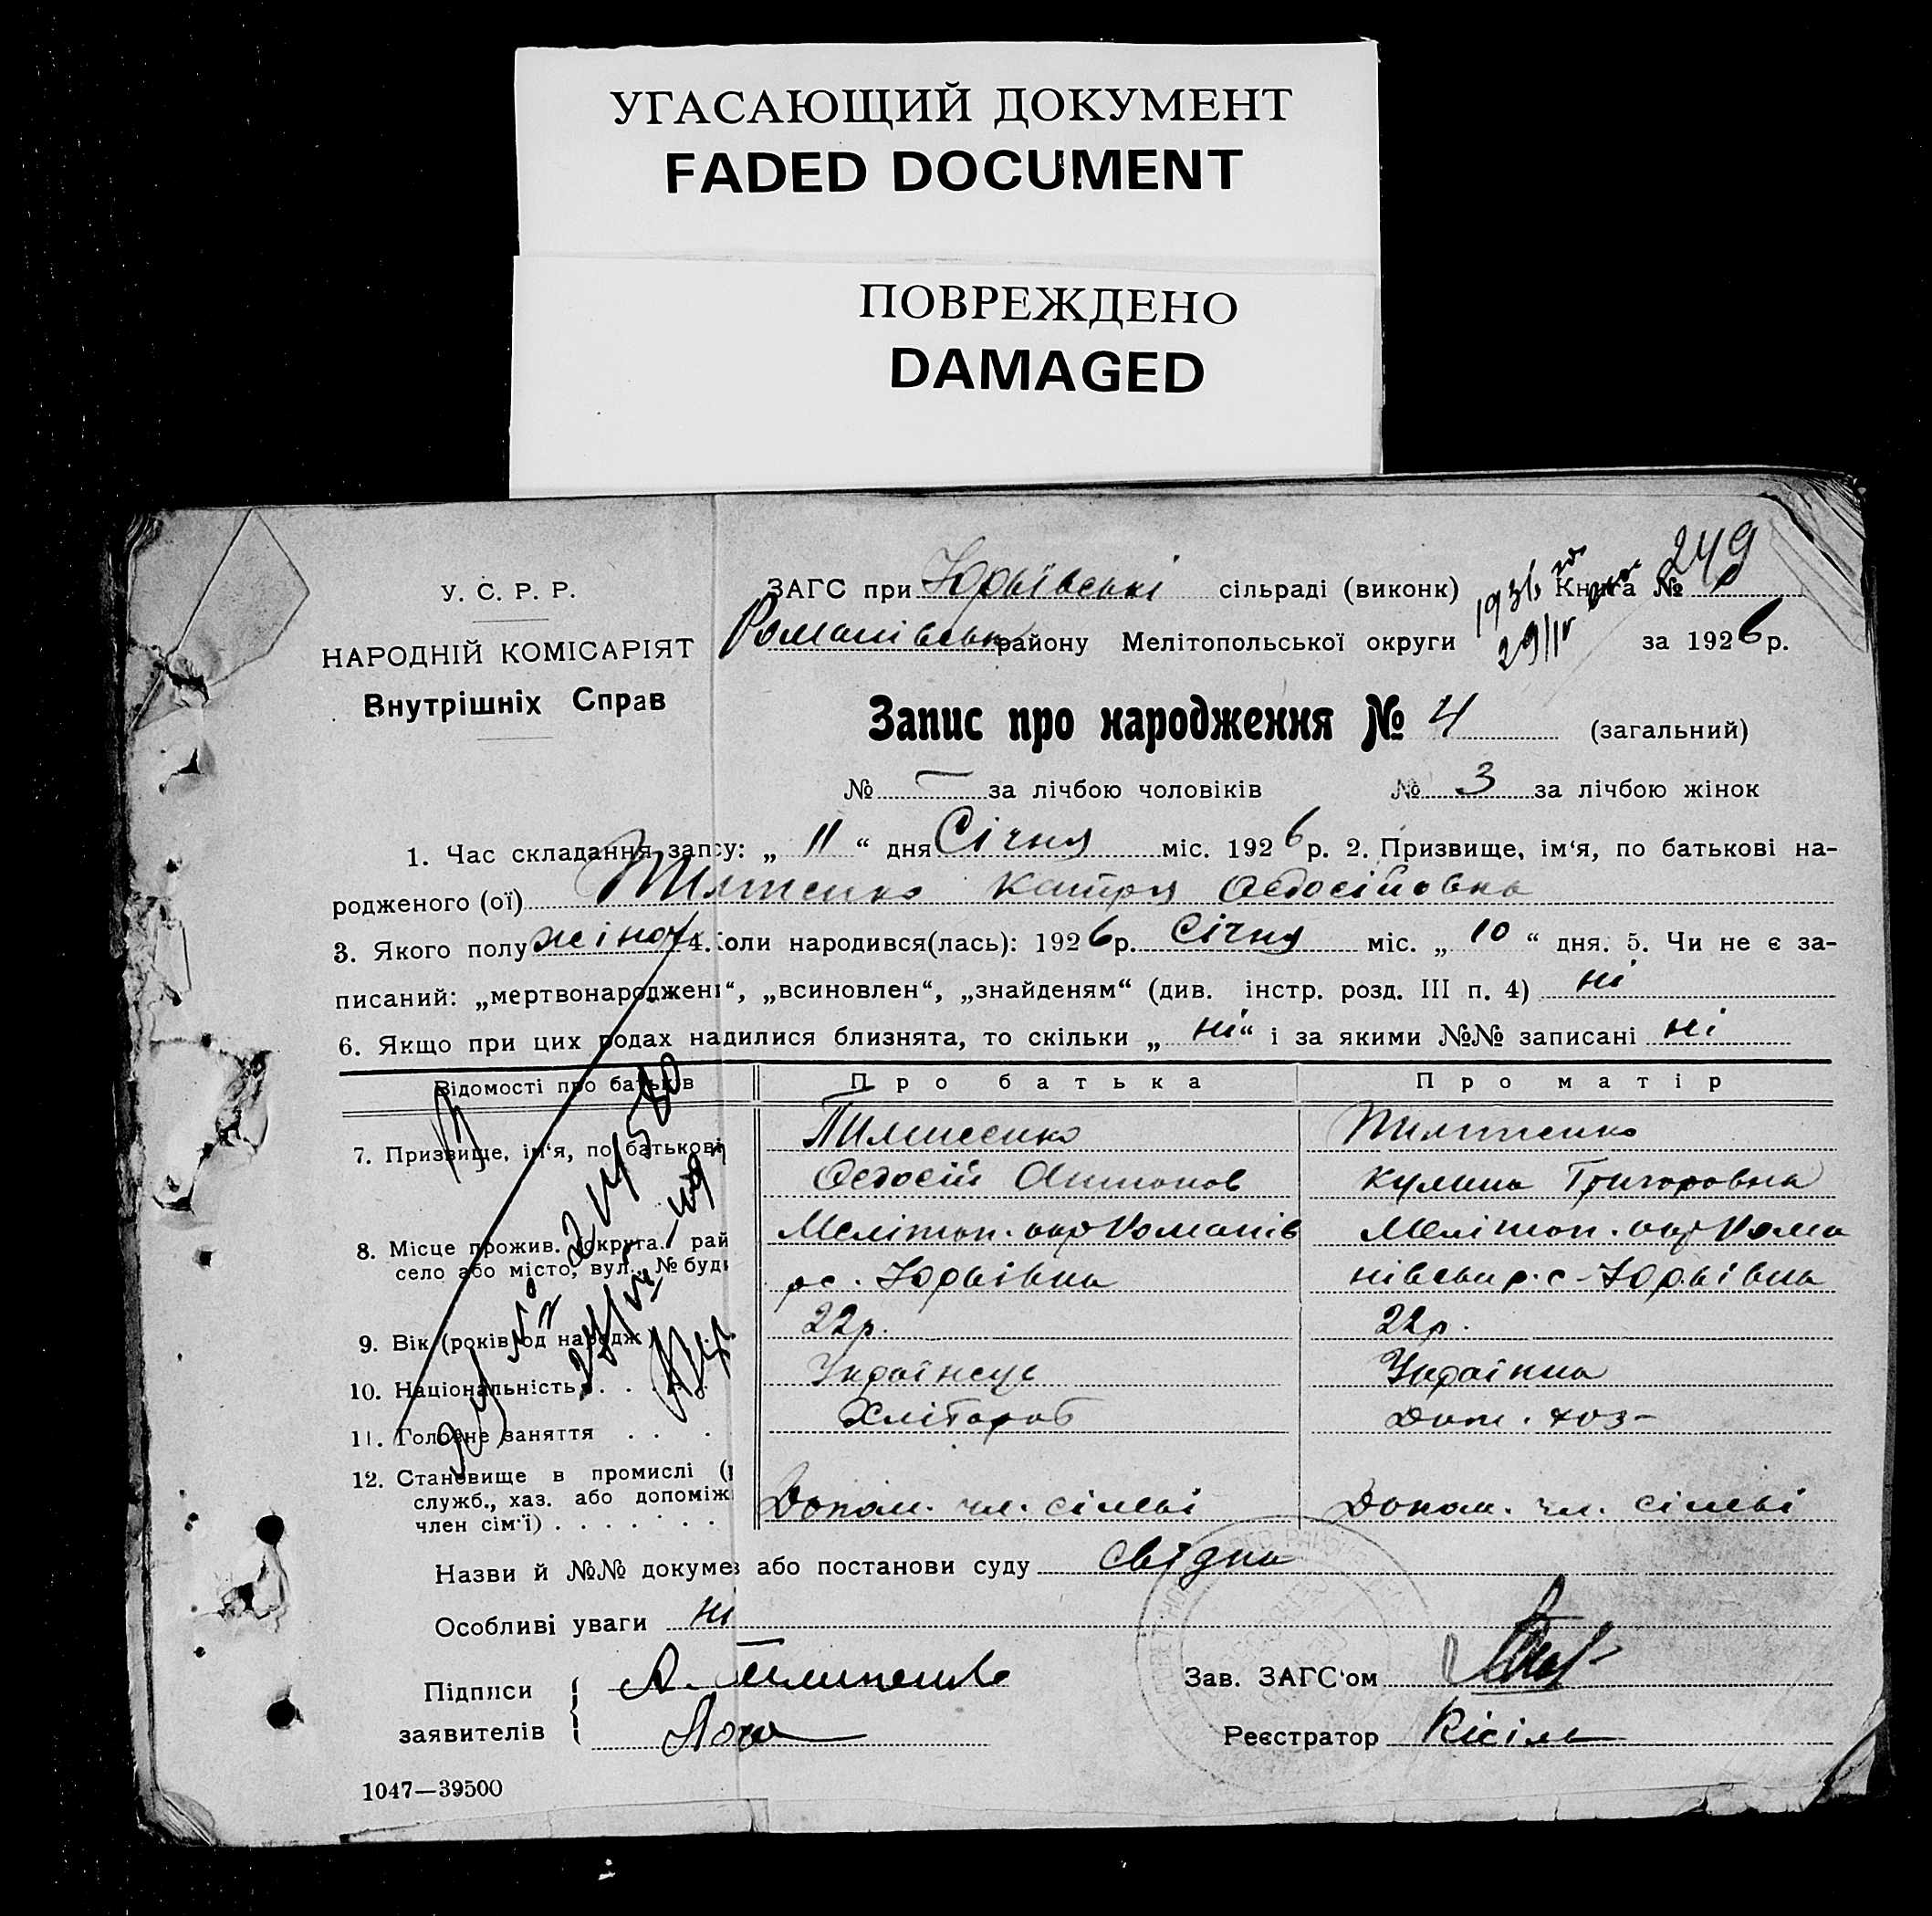 УГАСАЮЩИЙ ДОКУМЕНТ
FADED DOCUMENT
ПОВРЕЖДЕНО
DAMAGED
У. С. Р. Р.
НАРОДНІЙ КОМІСАРІЯТ
Внутрішніх Справ
ЗАГС при Юрьївські сільраді (виконк) Книга № 249
Романівськ району Мелітопольської округи за 1926 р.
Запис про народження № 4 (загальний)
№ — за лічбою чоловіків № 3 за лічбою жінок
1. Час складання запсу: „ 11 “ дня Січня міс. 1926 р. 2. Призвище, ім‘я, по батькові на-
родженого (ої) Катря Овдосійовна
3. Якого полу жіноч 4. оли народився(лась): 1926 р. Січня міс. „ 10 “ дня. 5. Чи не є за-
писаний: „мертвонароджені“, „всиновлен“, „знайденям“ (див. інстр. розд. III п. 4) ні
6. Якщо при цих родах надилися близнята, то скільки „ ні “ і за якими №№ записані ні
Відомості про батьків Про батька Про матір
7. Призвище, ім‘я, по батькові
Овдосій Антонов Кулина Григоровна
8. Місце прожив. (округа, рай Мелітоп. окр Романів Мелітоп. окр Рома
село або місто, вул., № буд рс. Юрьівка нівськ р. с. Юрьівка
9. Вік (років од народж 22р. 22р.
10. Національність . . . . . Українець Українка
11. Головне заняття . . . Хлібороб Дом. хоз-
12. Становище в промислі (
служб., хаз. або допоміж Допом. чл. сімьі Допом. чл. сімьі
член сім‘ї) . . . . . . .
Назви й №№ докумез або постанови суду свідки
Особливі уваги ні
Підписи
заявителів
Зав. ЗАГС‘ом
Реєстратор Кісіль
1047—39500